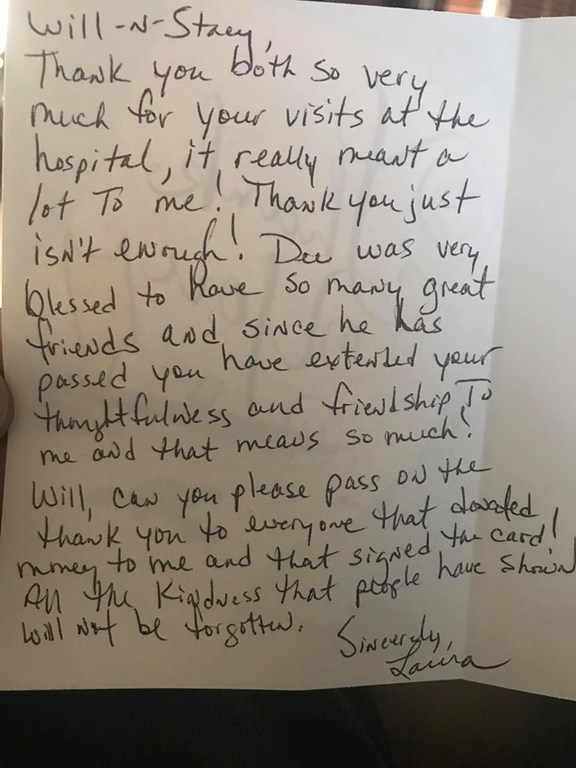 Will-N-Stacy,
Thank you both so very
much for your visits at the
hospital, it really meant a
lot To me! Thank you just
isn't enough! Dee was very
blessed to have so many great
friends and since he has
passed you have extended your
thoughtfulness and friendship To
me and that means so much!
Will, can you please pass on the
thank you to everyone that donated
money to me and that signed the card!
All the Kindness that people have shown
will not be forgotten.
Sincerely,
Laura